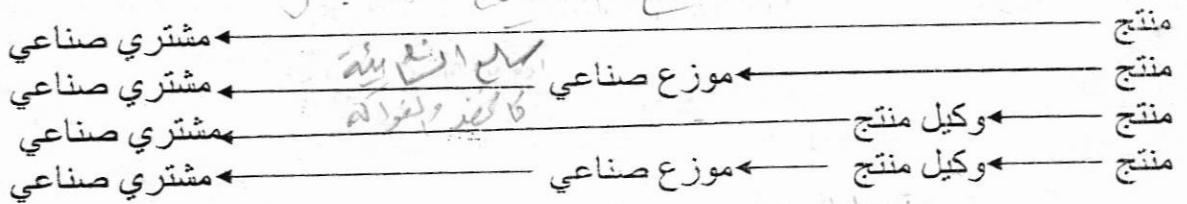 منتج ← مشتري صناعي
منتج ← موزع صناعي ← مشتري صناعي
منتج ← وكيل منتج ← مشتري صناعي
منتج ← وكيل منتج ← موزع صناعي ← مشتري صناعي
كالخضر والفواكه